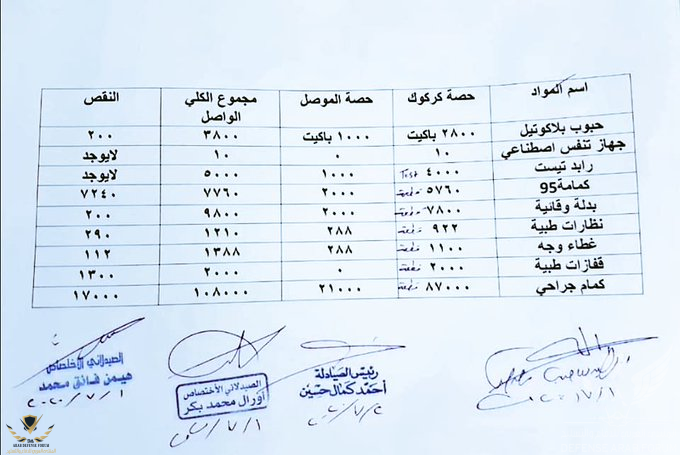 اسم المواد حصة كركوك حصة الموصل مجموع الكلي الواصل النقص
حبوب بلاكوتيل ٢٨٠٠ باكيت ١٠٠٠ باكيت ٣٨٠٠ ٢٠٠
جهاز تنفس اصطناعي ١٠ ٠ ١٠ لايوجد
رابد تيست ٤٠٠٠ Test ١٠٠٠ ٥٠٠٠ لايوجد
كمامة95 ٥٧٦٠ قطعة ٢٠٠٠ ٧٧٦٠ ٧٢٤٠
بدلة وقائية ٧٨٠٠ قطعة ٢٠٠٠ ٩٨٠٠ ٢٠٠
نظارات طبية ٩٢٢ قطعة ٢٨٨ ١٢١٠ ٢٩٠
غطاء وجه ١١٠٠ قطعة ٢٨٨ ١٣٨٨ ١١٢
قفازات طبية ٢٠٠٠ قطعة ٠ ٢٠٠٠ ١٣٠٠
كمام جراحي ٨٧٠٠٠ قطعة ٢١٠٠٠ ١٠٨٠٠٠ ١٧٠٠٠
رئيس الصيادلة
أحمد كمال حسين
الصيدلاني الأختصاص
أورال محمد بكر
الصيدلاني الأختصاص
هيمن فائق محمد
٢٠٢٠/٧/١
ARAB DEFENSE FORUM